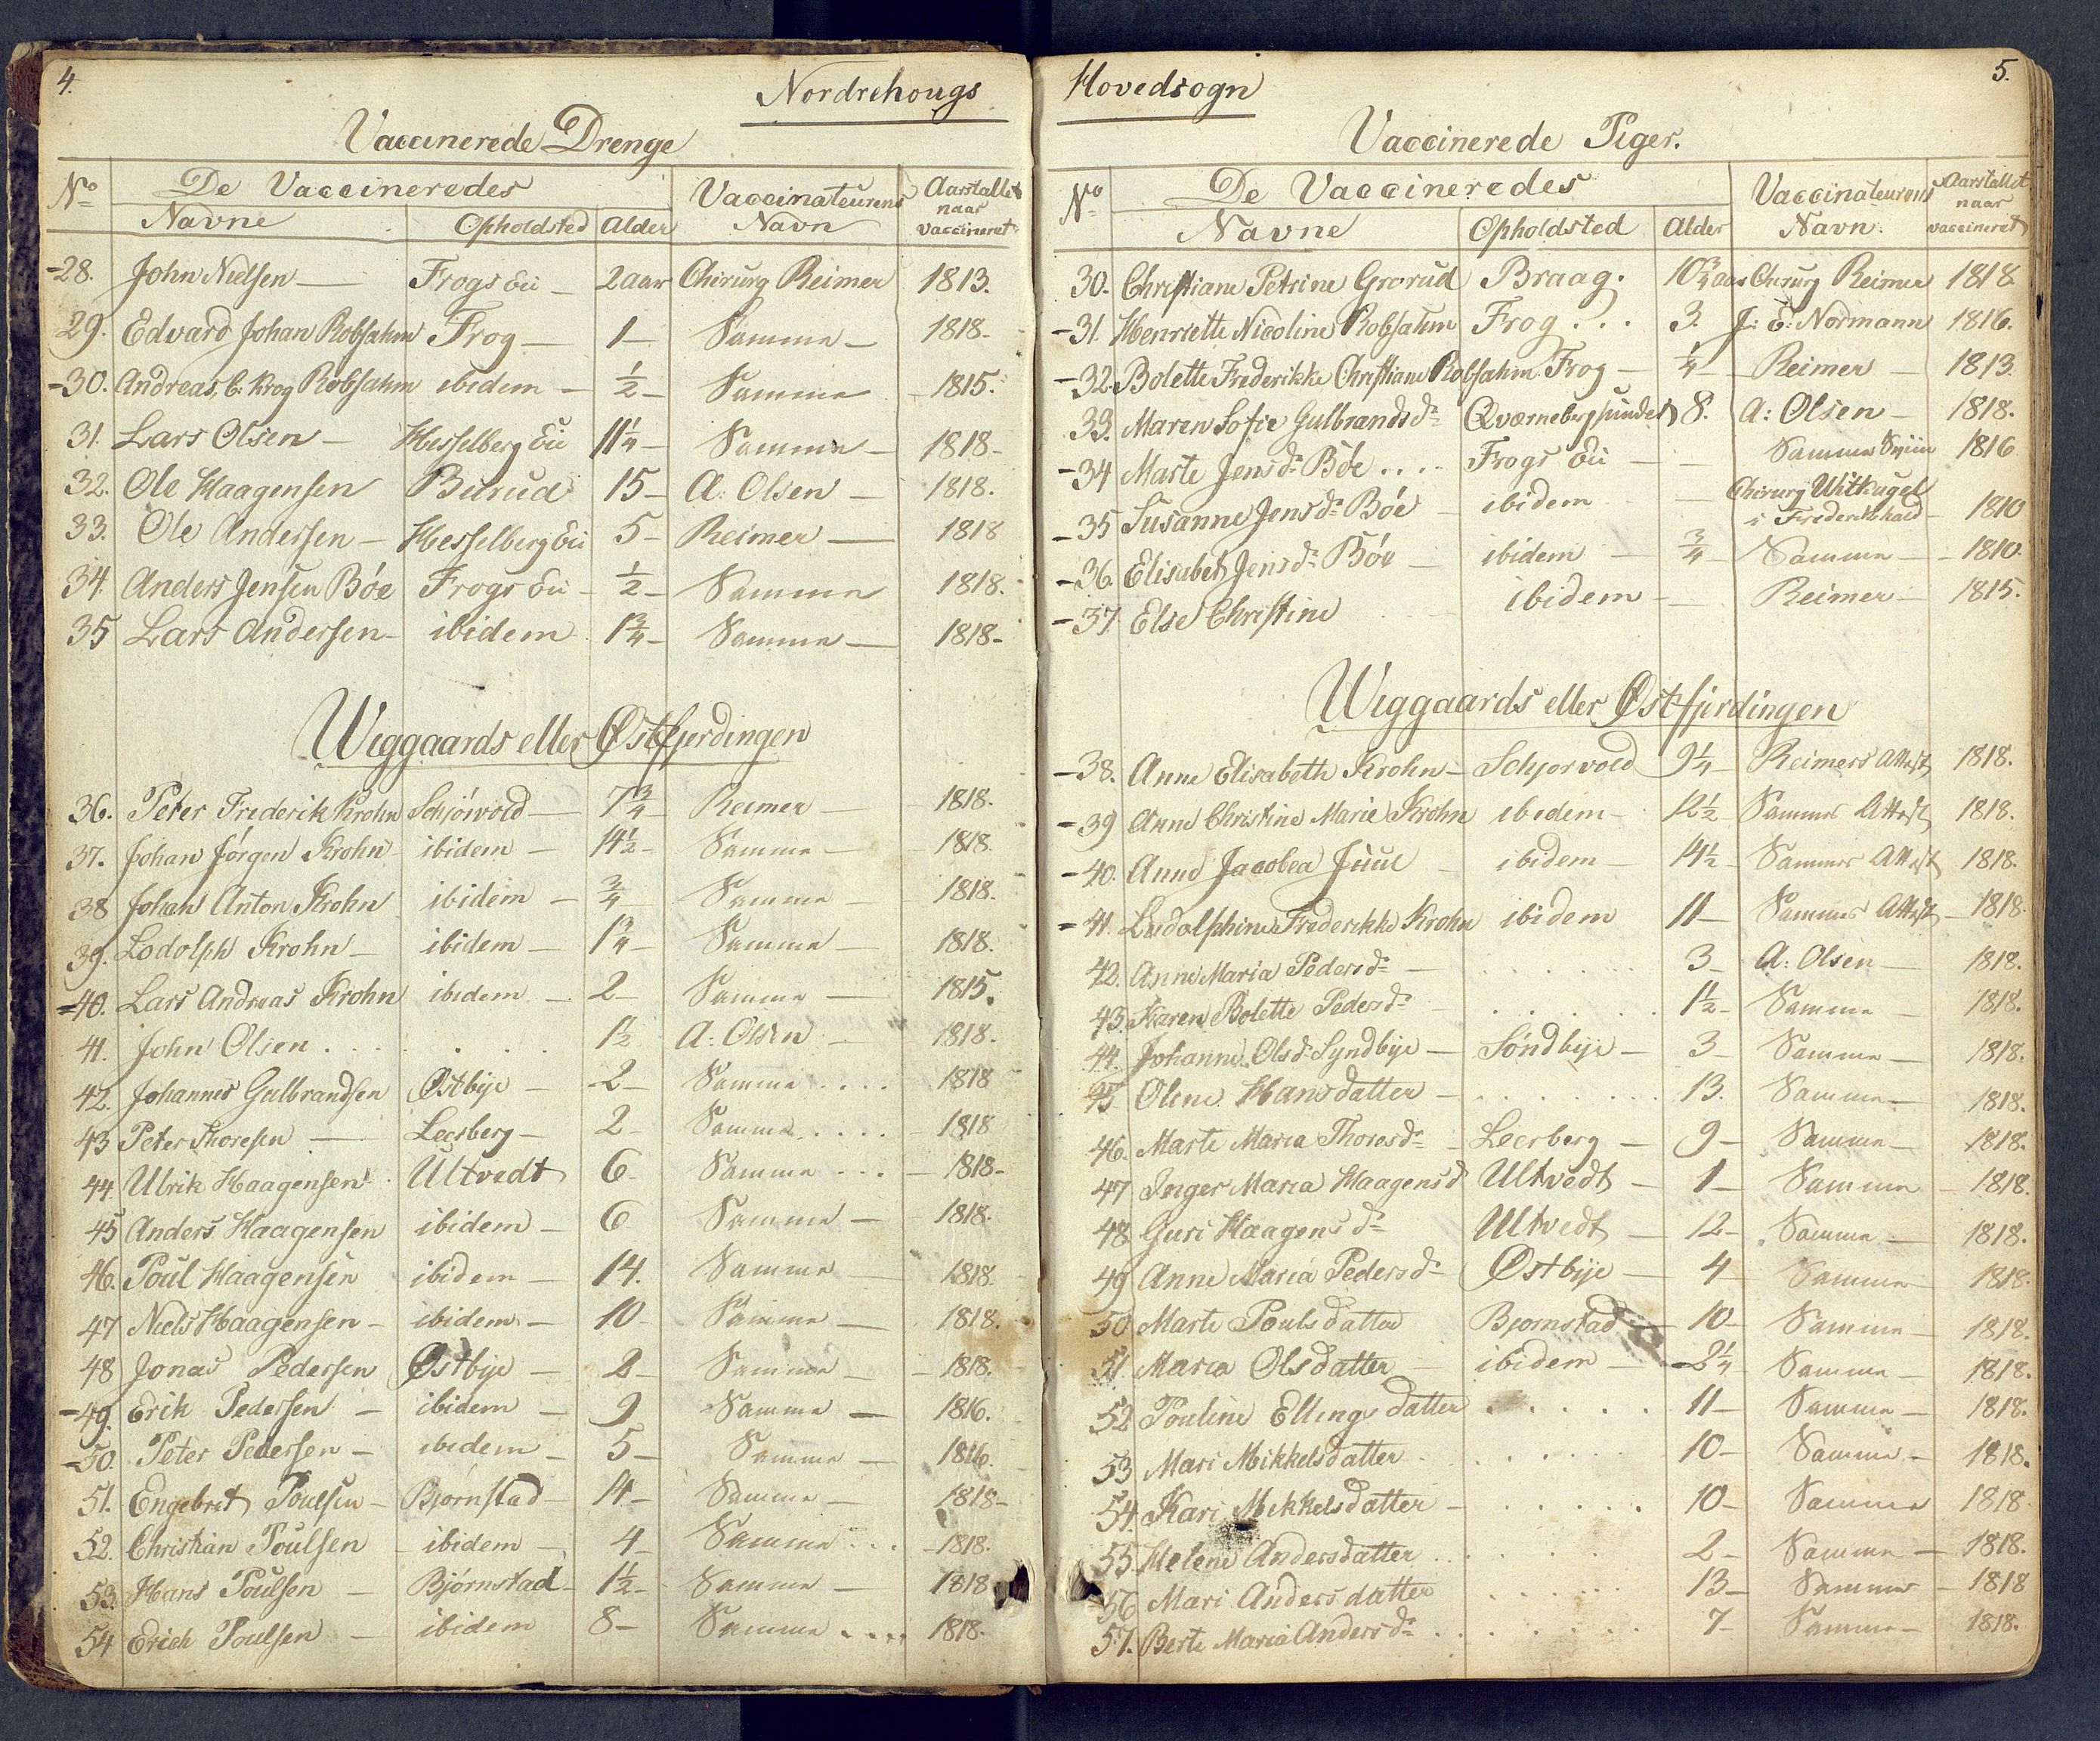 4.
Nordrehougs
Vaccinerede Drenge
No De Vaccineredes Vaccinateurens Navn Aarstallet naar vaccineret
Navne Opholdsted Alder
28. John Nielsen Frogs Eii 2 aar Chirurg Reimer 1813.
29. Edvard Johan Robsahm Frog 1 Samme 1818
30. Andreas C. Krog Robsahm ibidem 1/2 Samme 1815.
31. Lars Olsen Hesselberg Eii 11 1/4 Samme 1818
32. Ole Haagensen Burud 15 A: Olsen 1818.
33. Ole Andersen Hesselberg Eii 5 Reimer 1818
34. Anders Jensen Bøe Frogs Eii 1/2 Samme 1818.
35 Lars Andersen ibidem 1 3/4 Samme 1818
Wiggaards eller Østfjerdingen
36. Peter Frederik Krohn Schjørvold 7 3/4 Reimer 1818.
37. Johan Jørgen Krohn ibidem 14 1/2 Samme 1818
38 Johan Anton Krohn ibidem 3/4 Samme 1818.
39. Lodolph Krohn ibidem 1 3/4 Samme 1818.
40. Lars Andreas Krohn ibidem 2 Samme 1815.
41. John Olsen . . . . 1 1/2 A: Olsen 1818.
42. Johannes Gulbrandsen Østbye 2 Samme . . . . 1818
43 Peter Thoresen Leerberg 2 Samme . . . . 1818
44. Ulrik Haagensen Ultvedt 6 Samme . . . 1818
45 Anders Haagensen ibidem 6 Samme 1818.
46. Poul Haagensen ibidem 14. Samme 1818.
47 Niels Haagensen ibidem 10 Samme 1818.
48 Jonas Pedersen Østbye 2 Samme 1818.
49. Erik Pedersen ibidem 9 Samme 1816.
50. Peter Pedersen ibidem 5 Samme 1816.
51. Engebret Poulsen Bjørnstad 14 Samme 1818
52. Christian Poulsen ibidem 4 Samme . . . 1818.
53. Hans Poulsen Bjørnstad 1 1/2 Samme 1818
54 Erich Poulsen ibidem 8 Samme . . . . 1818.
5.
Hovedsogn
Vaccinerede Piger.
No De Vaccineredes Vaccinateurens Navn Aarstallet naar vaccineret
Navne Opholdsted Alder
30. Christiane Petrine Grorud Braag. 10 3/4 aar Chirurg Reimer 1818
31. Henriette Nicoline Robsahm Frog . . . 3. J: E: Normann 1816.
32. Bolette Frederikke Christiane Robsahm Frog 1/4 Reimer 1813.
33. Maren Sofie Gulbrandsdr Qværnebergsundet 8. A: Olsen 1818.
34 Marte Jensdr Bøe . . . . Frogs Eii Samme 1816
35 Susanne Jensdr Bøe ibidem Chirurg Withugel i Frederikshald 1810
36. Elisabet Jensdr Bøe ibidem 3/4 Samme 1810.
37 Else Christine ibidem Reimer 1815.
Wiggaards eller Østfjerdingen
38. Anne Elisabeth Krohn Schjorvold 9 1/4 Reimers Attest 1818.
39 Anne Christine Marie Krohn ibidem 12 1/2 Sammes Attest 1818.
40. Anne Jacobea Juul ibidem 14 1/2 Sammes Attest 1818.
41. Ludolphine Frederikke Krohn ibidem 11 Sammes Attest 1818.
42. Anne Maria Pedersdr . . . . . . 3 A: Olsen 1818.
43. Karen Bolette Pedersdr . . . . . . 1 1/2 Samme 1818.
44. Johanne Olsd. Syndbye Søndbye 3 Samme 1818.
45 Oline Hansdatter . . . . . . 13. Samme 1818.
46. Marte Maria Thoresdr Leerberg 9 Samme 1818.
47 Inger Maria Haagensd Ultvedt 1 Samme 1818.
48 Guri Haagensdr Ultvedt 12 Samme 1818.
49 Anne Maria Pedersdr Østbye 4 Samme 1818.
50 Marte Poulsdatter Bjørnstad 10 Samme 1818.
51. Maria Olsdatter ibidem 2 1/4 Samme 1818.
52 Pouline Ellingsdatter . . . . . 11 Samme 1818.
53 Mari Mikkelsdatter . . . . . 10 Samme 1818.
54. Kari Mikkelsdatter . . . . . 10 Samme 1818
55. Helene Andersdatter . . . . . 2 Samme 1818.
56 Mari Andersdatter . . . . . 13 Samme 1818
57. Berte Maria Andersdr . . . . . 7 Samme 1818.